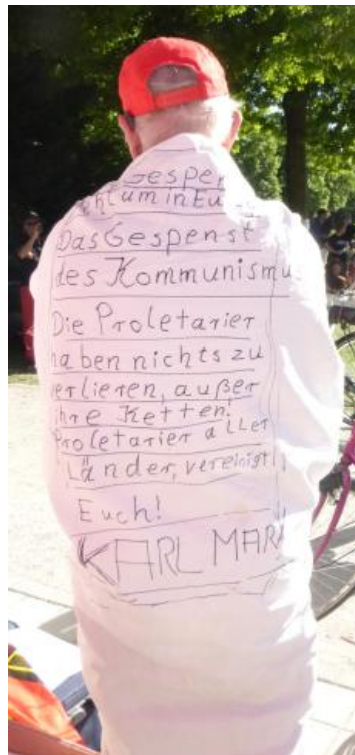 Gespen
eht um in Eu
Das Gespenst
des Kommunismu
Die Proletarier
haben nichts zu
verlieren, außer
ihre Ketten!
Proletarier aller
Länder, vereinigt
Euch!
KARL MARX